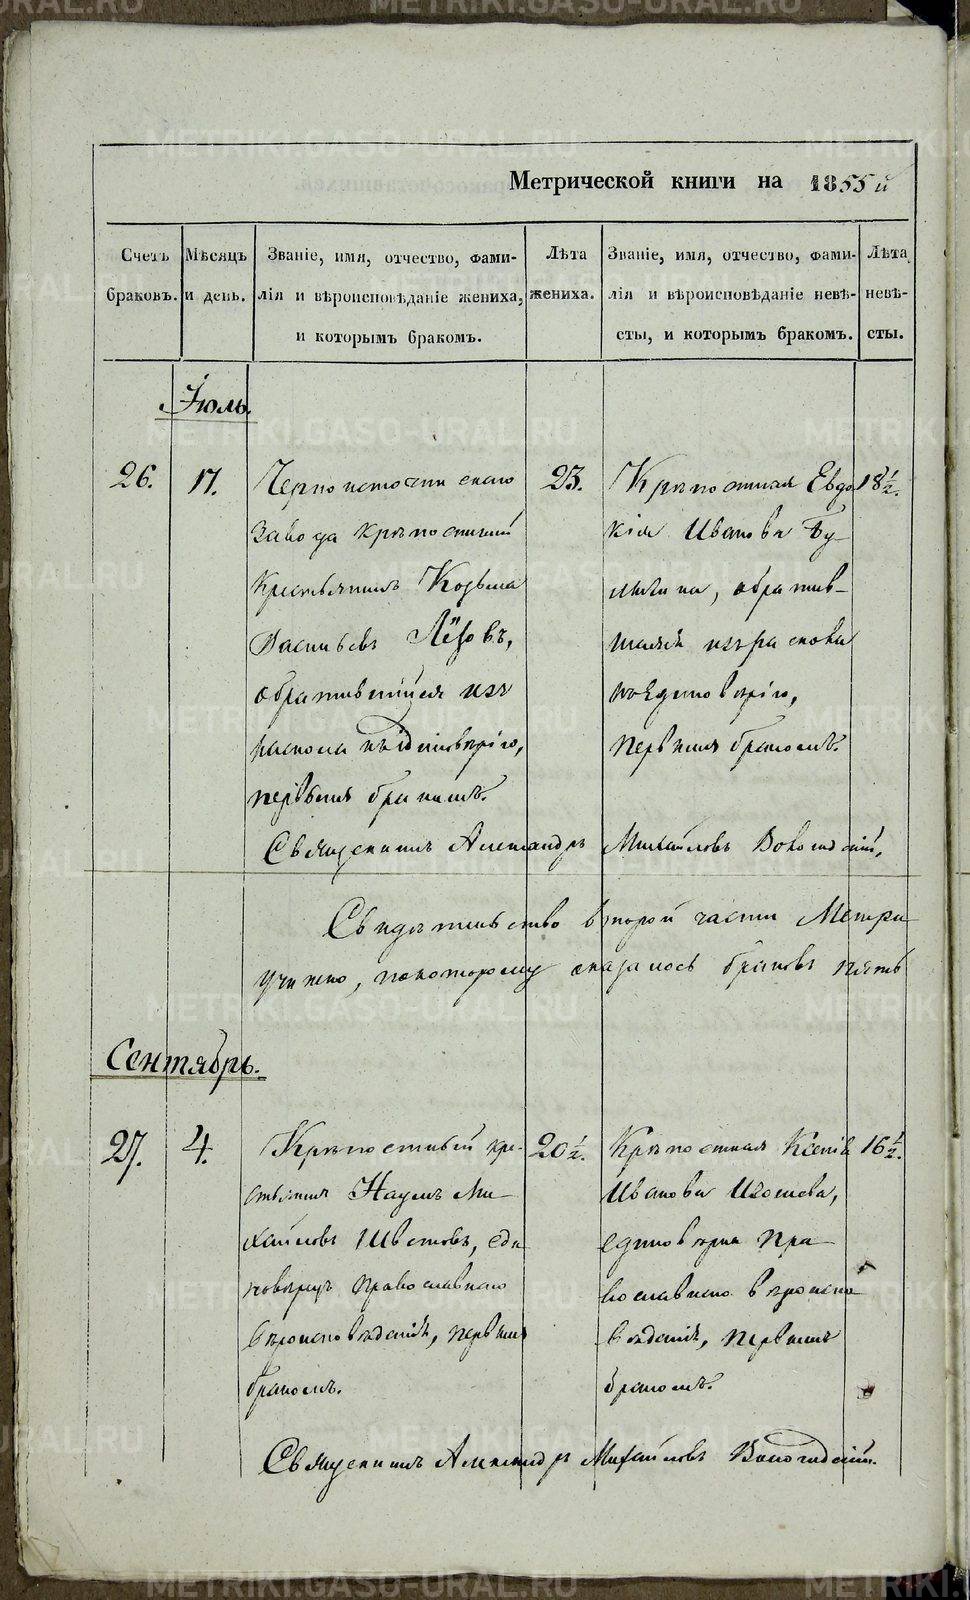 Метрической книги на 1855й
Счетъ браковъ.
Мѣсяцъ и день.
Званіе, имя, отчество, фами-
лія и вѣроисповѣданіе жениха,
и которымъ бракомъ.
Лѣта жениха.
Званіе, имя, отчество, фами-
лія и вѣроисповѣданіе невѣ-
сты, и которымъ бракомъ.
Лѣта невѣ-
сты.
Іюль.
26.
17.
Черноисточинскаго
завода крѣпостный
крестьянинъ Козьма
Васильевъ Лёзовъ,
обратившійся изъ
раскола къ единовѣрію,
первымъ бракомъ.
23.
Крѣпостная Евдо
кія Иванова Бу
обратив-
шаяся изъ раскола
къ единовѣрію,
первымъ бракомъ.
18½.
Священникъ Александръ Михайловъ
Свидѣтельство второй части Метри
учинено, по которому оказалось браковъ пять
Сентябрь.
27.
4.
Крѣпостный кре-
стьянинъ Наумъ Ми-
хайловъ Швецовъ, еди
новѣрецъ православнаго
вѣроисповѣданія, первымъ
бракомъ.
20½.
Крѣпостная Ксенія
Иванова Изосиева,
единовѣрка пра
вославнаго вѣроиспо
вѣданія, первымъ
бракомъ.
16½.
Священникъ Александръ Михайловъ
METRIKI.GASO-URAL.RU